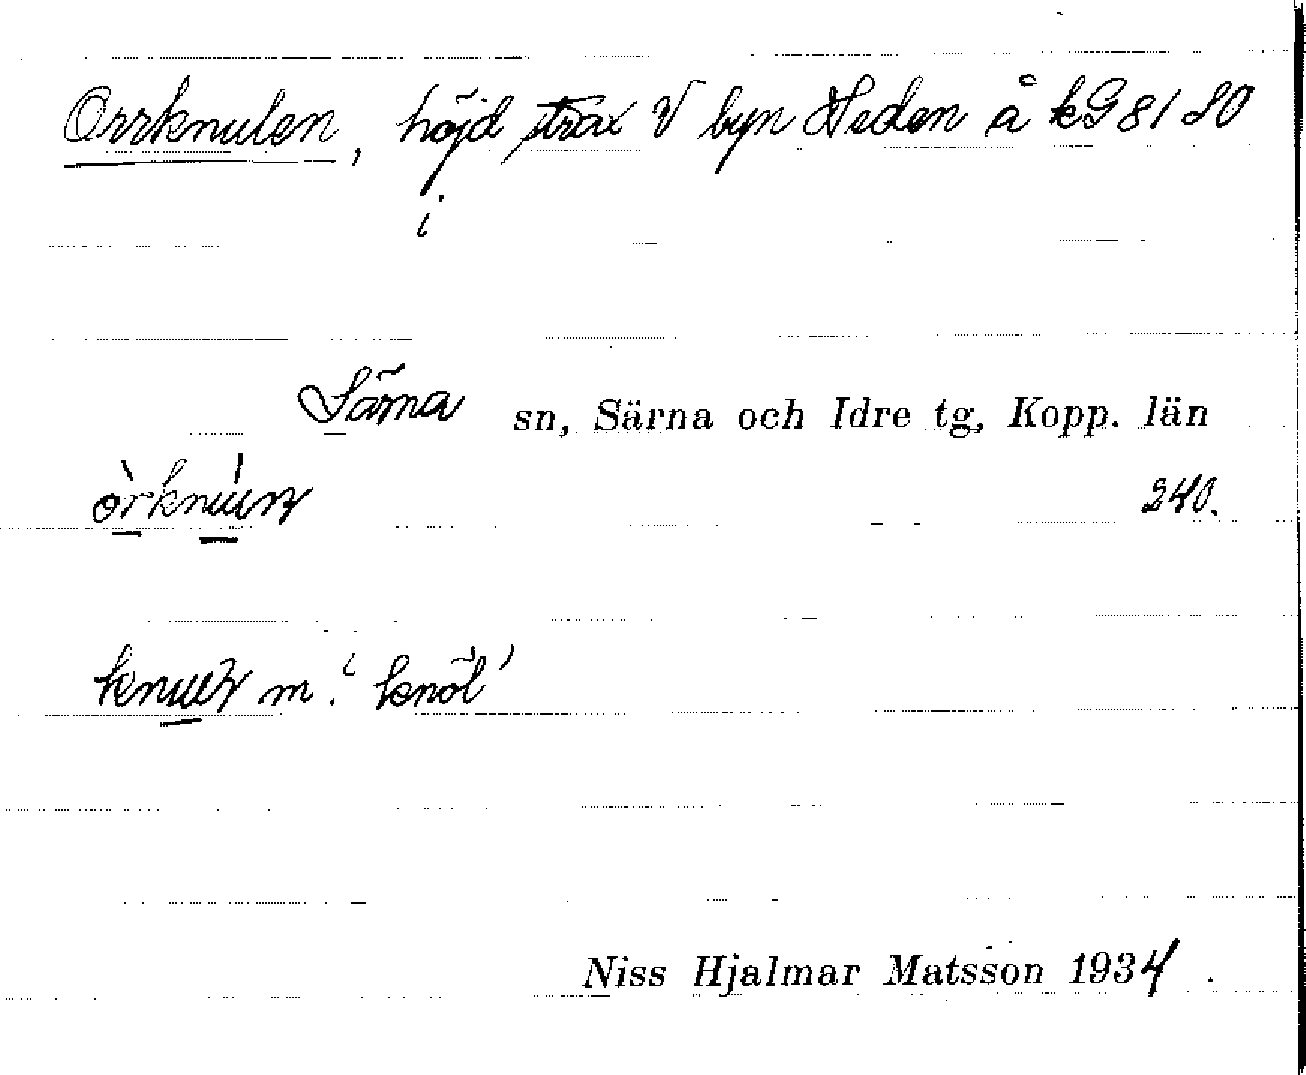 Orrknulen, höjd strax V byn Heden å kG 81 SO
i
Särna sn, Särna och Idre tg, Kopp. län
240.
m. 'knöl'
Niss Hjalmar Matsson 1934.